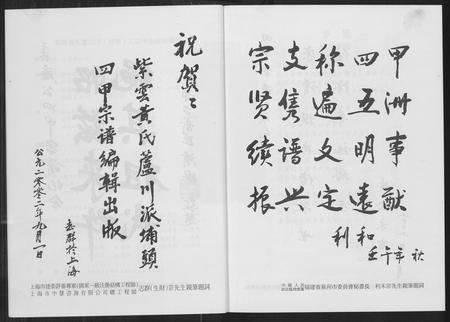 甲洲事猷
四五明遠
称遍文定
支隽谱兴
宗贤续振
利和
壬午年秋
福建省泉州市委員會秘書長:利禾宗先生親筆題詞
祝賀:
紫雲黄氏蘆川派埔頭
四甲宗谱編輯出版
志群於上海
公元二零零二年九月一日
上海市建委評審專家(國家一級注册結構工程師)
上海市中慧咨詢有限公司總工程師
志群(生財)宗先生親筆題詞